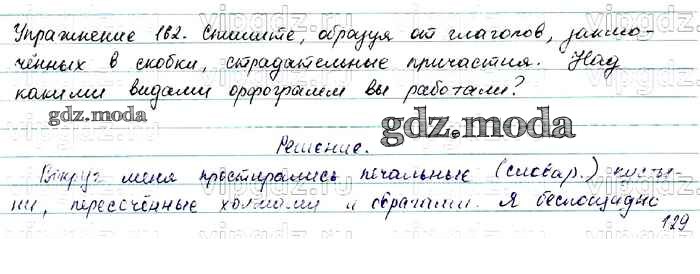 Упражнение 162. Спишите, образуя от глаголов, заклю-
чённых в скобки, страдательные причастия. Над
какими видами орфограмм вы работали?
gdz.moda
gdz.moda
Решение.
Вокруг меня простирались печальные (словар.) пусты-
ни, пересечённые холмами и оврагами. Я беспощадно
129